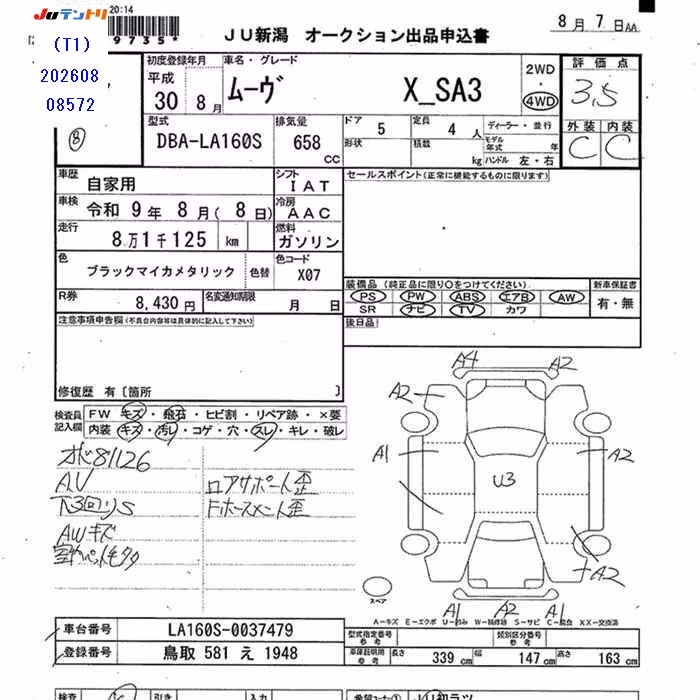 JUテントリ
20:14
9735*
(T1)
202608
08572
JU新潟 オークション出品申込書
8月 7日AA
初度登録年月
平成
30 8月
車名・グレード
ムーヴ X_SA3
2WD
・
4WD
評価点
3.5
外装 内装
C C
8
型式
DBA-LA160S
排気量
658
CC
ドア 5
形状
定員 4 人
積載 kg
ディーラー・並行
モデル年式 年
ハンドル 左・右
車歴
自家用
シフト
IAT
車検
令和 9年 8月( 8日)
冷房
AAC
走行
8万1千125 km
燃料
ガソリン
色
ブラックマイカメタリック
色替
色コード
X07
R券
8,430円
名変通知期限
月 日
セールスポイント(正常に機能するものに限ります)
装備品 (純正品に限り○をつけてください)
新車保証書
PS PW ABS エアB AW
SR ナビ TV カワ
有・無
後日品
注意事項申告欄(不具合内容等は具体的に記入して下さい)
修復歴 有〔箇所 〕
検査員
記入欄
FW キズ・飛石・ヒビ割・リペア跡・×要
内装 キズ・汚レ・コゲ・穴・スレ・キレ・破レ
メーター81126
AV
下回りS
AWキズ
ロアサポート歪
Fホースメント歪
A4 A2
A2
A1
A2
U3
A2
A1 A2 A1
スペア
A-キズ E-エクボ U-凹み W-補修跡 S-サビ C-腐食 XX-交換済
車台番号
LA160S-0037479
登録番号
鳥取 581 え 1948
型式指定番号
参考
類別区分番号
参考
車庫証明用
参考
長さ 339 cm
幅 147 cm
高さ 163 cm
検査
引き
入力
希望コーナー①
JU初ラツ